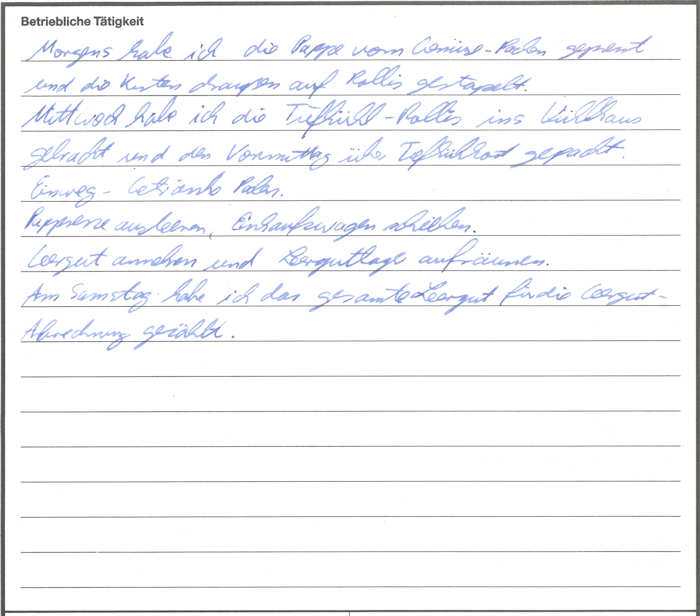 Betriebliche Tätigkeit
Morgens habe ich die Pappe vom Gemüse-Packen gepresst
und die Kisten draußen auf Rollis gestapelt.
Mittwoch habe ich die Tiefkühl-Rollis ins Kühlhaus
gebracht und den Vormittag über Tiefkühlkost gepackt.
Einweg-Getränke Packen.
Papppresse ausleeren, Einkaufswagen schieben.
Leergut annehmen und Leergutlager aufräumen.
Am Samstag habe ich das gesamte Leergut für die Leergut-
Abrechnung gezählt.